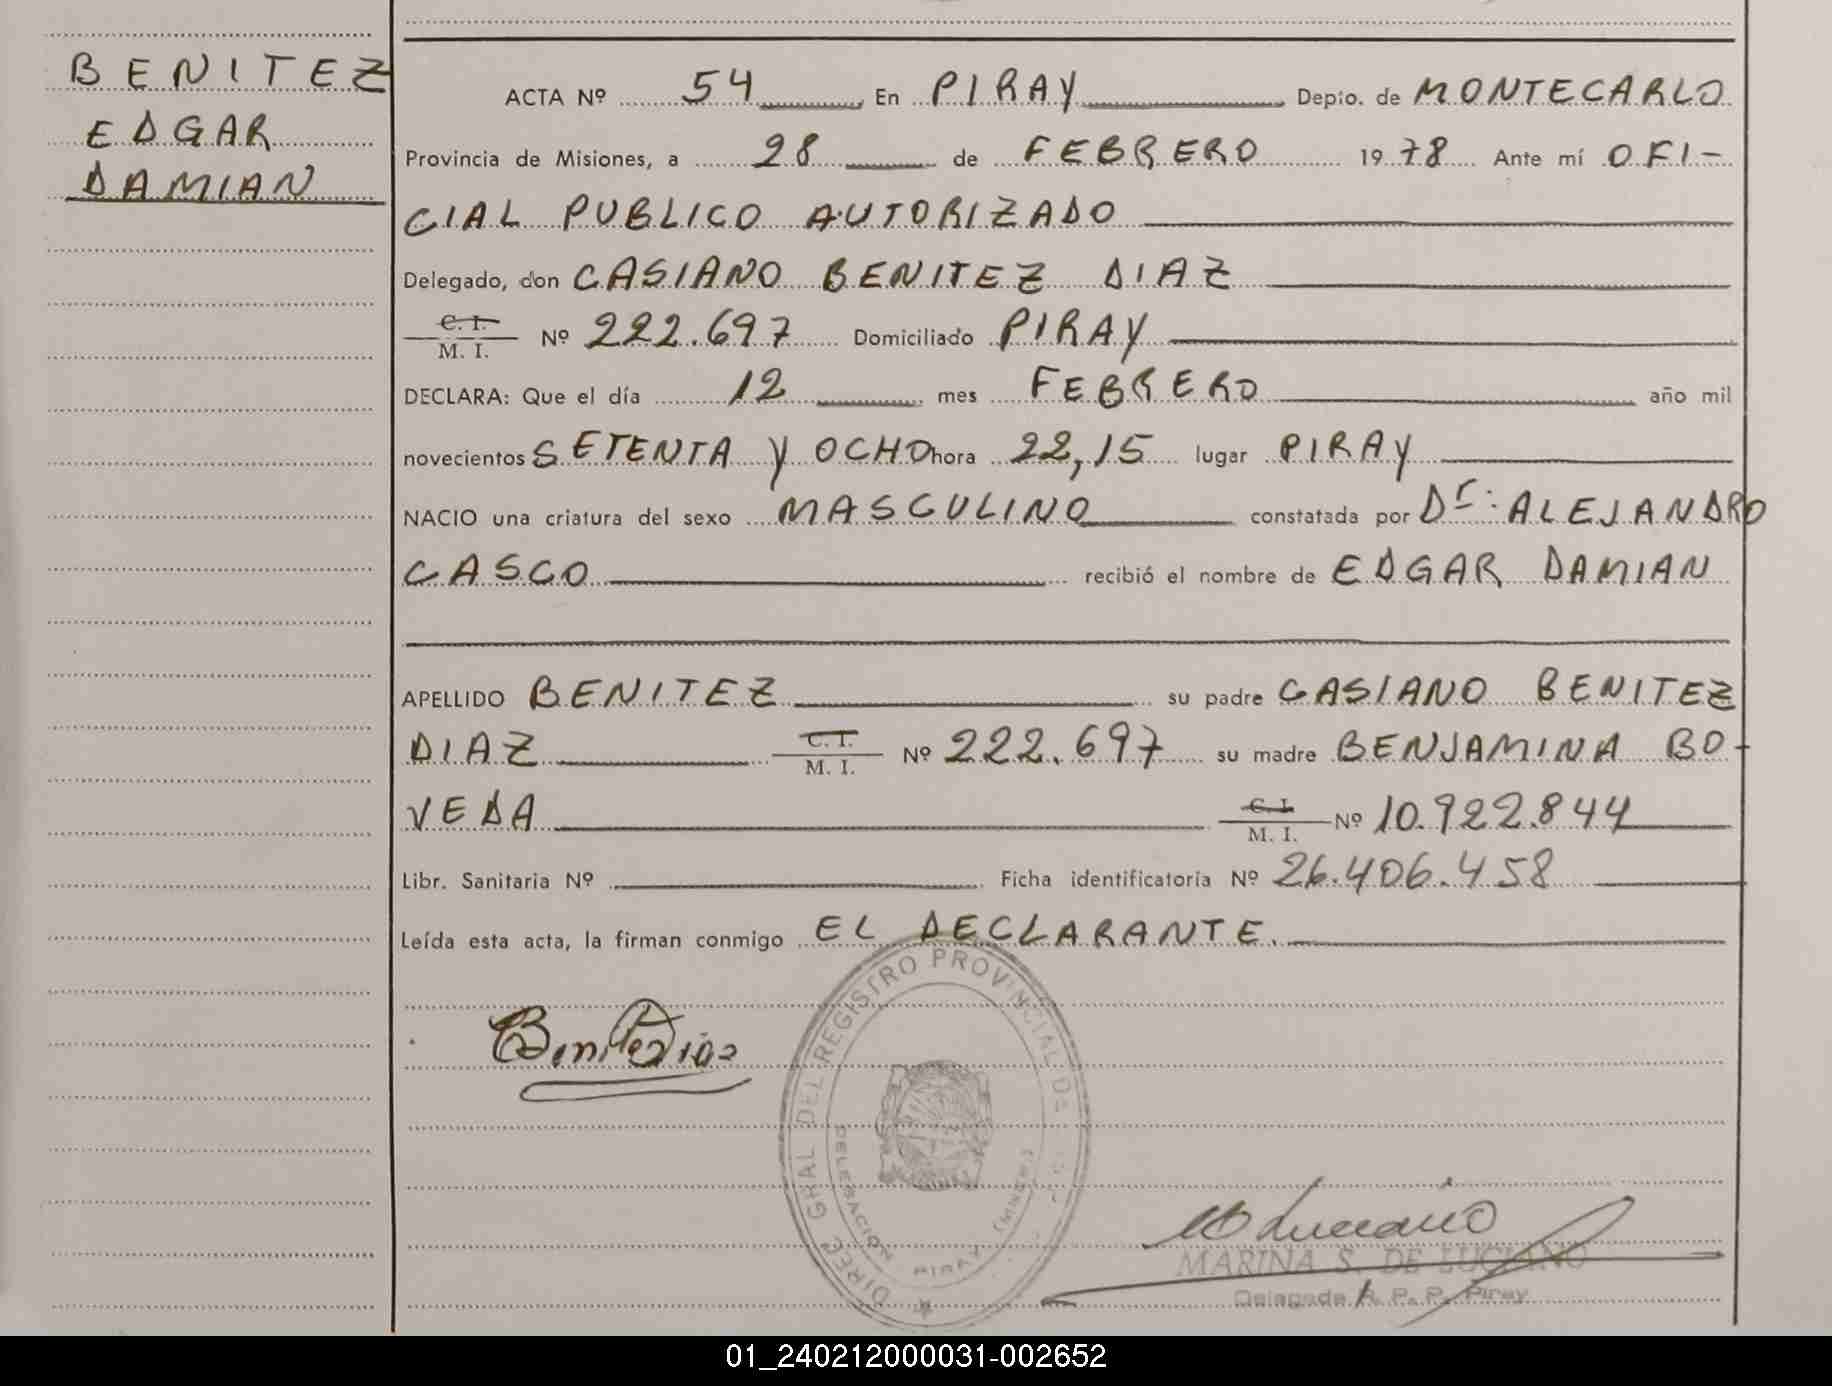 BENITEZ
EDGAR
DAMIAN
ACTA Nº 54 En PIRAY Depto. de MONTECARLO
Provincia de Misiones, a 28 de FEBRERO 1978 Ante mí OFI-
CIAL PUBLICO AUTORIZADO
Delegado, don CASIANO BENITEZ DIAZ
C. I.
M. I. Nº 222.697 Domiciliado PIRAY
DECLARA: Que el día 12 mes FEBRERO año mil
novecientos SETENTA Y OCHO hora 22,15 lugar PIRAY
NACIO una criatura del sexo MASCULINO constatada por Dr: ALEJANDRO
CASCO recibió el nombre de EDGAR DAMIAN
APELLIDO BENITEZ su padre CASIANO BENITEZ
DIAZ C. I. M. I. Nº 222.697 su madre BENJAMINA BO-
VEDA C. I. M. I. Nº 10.922.844
Libr. Sanitaria Nº Ficha identificatoria Nº 26.406.458
Leída esta acta, la firman conmigo EL DECLARANTE.
Benitez Diaz
DIREC GRAL DEL REGISTRO PROVINCIAL DE
DELEGACION PIRAY (MNES.)
MARINA S. DE LUCIANO
Delegada R. P. P. Piray
01_240212000031-002652